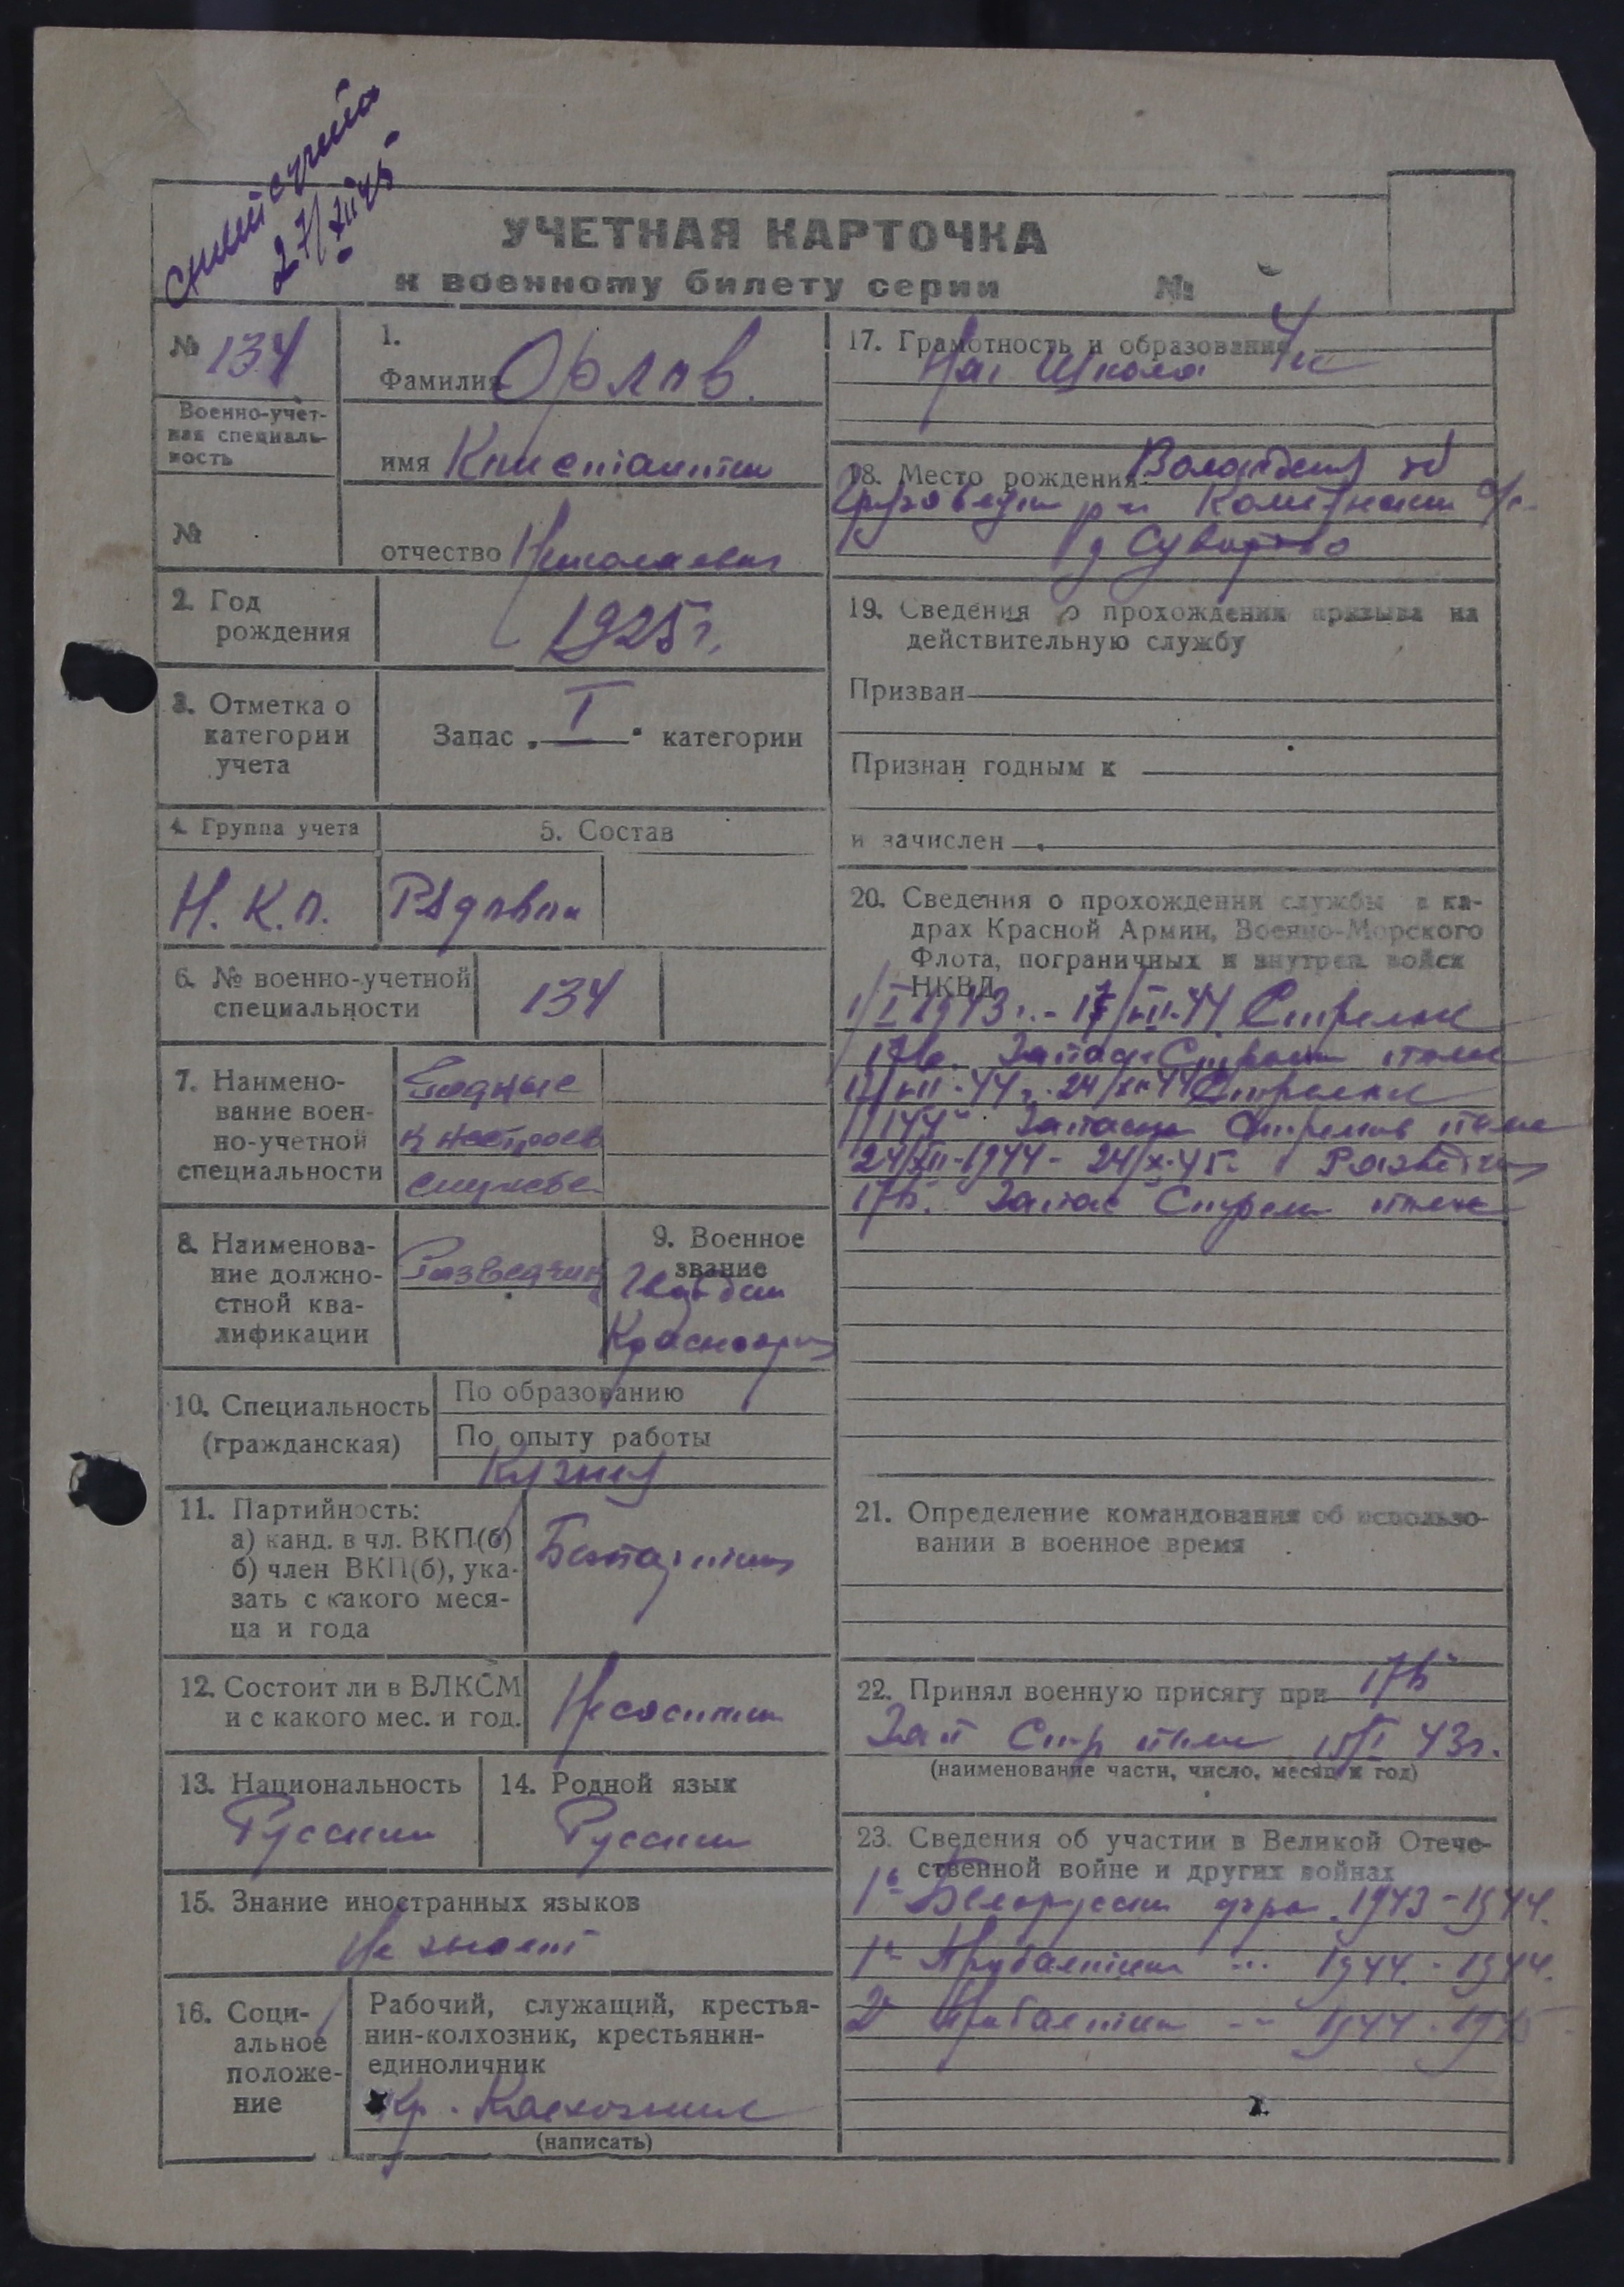 снят с учета
27/XII 45
УЧЕТНАЯ КАРТОЧКА
к военному билету серии №
№ 134
Военно-учет-
ная специаль-
ность
№
1.
Фамилия Орлов.
имя Константин
отчество Николаевич
2. Год
рождения
1925 г.
3. Отметка о
категории
учета
Запас „ I " категории
4. Группа учета
5. Состав
Н. К. П.
Рядовой
6. № военно-учетной
специальности
134
7. Наимено-
вание воен-
но-учетной
специальности
Годные
к нестроев
службе
8. Наименова-
ние должно-
стной ква-
лификации
Разведчик
9. Военное
звание
Гвардии
Красноарм
10. Специальность
(гражданская)
По образованию
По опыту работы
Кузнец
11. Партийность:
а) канд. в чл. ВКП(б)
б) член ВКП(б), ука-
зать с какого меся-
ца и года
Беспартийн
12. Состоит ли в ВЛКСМ
и с какого мес. и год.
Не состоит
13. Национальность
Русский
14. Родной язык
Русский
15. Знание иностранных языков
Не знает
16. Соци-
альное
положе-
ние
Рабочий, служащий, крестья-
нин-колхозник, крестьянин-
единоличник
Кр. Колхозник
(написать)
17. Грамотность и образование
Нач Школа 4 кл
18. Место рождения Вологодская об
Грязовецкий р-н с/с
д Суворово
19. Сведения о прохождении призыва на
действительную службу
Призван
Признан годным к
и зачислен
20. Сведения о прохождении службы в ка-
драх Красной Армии, Военно-Морского
Флота, пограничных и внутрен. войск
НКВД
1/I 1943 г. - 17/VII-44 Стрелок
Запасн Стрелк полк
17/VII-44 г. 24/XII 44 Стрелок
Запасн Стрелков полк
24/XII-1944 - 24/X-45 Разведчик
Запас Стрелк полк
21. Определение командования об использо-
вании в военное время
22. Принял военную присягу при
Зап Стр полк I 43 г.
(наименование части, число, месяц и год)
23. Сведения об участии в Великой Отече-
ственной войне и других войнах
1й Белорусский фрон 1943 - 1944.
1й Прибалтийск -"- 1944 - 1944.
2й Прибалтийск -"- 1944 - 1945